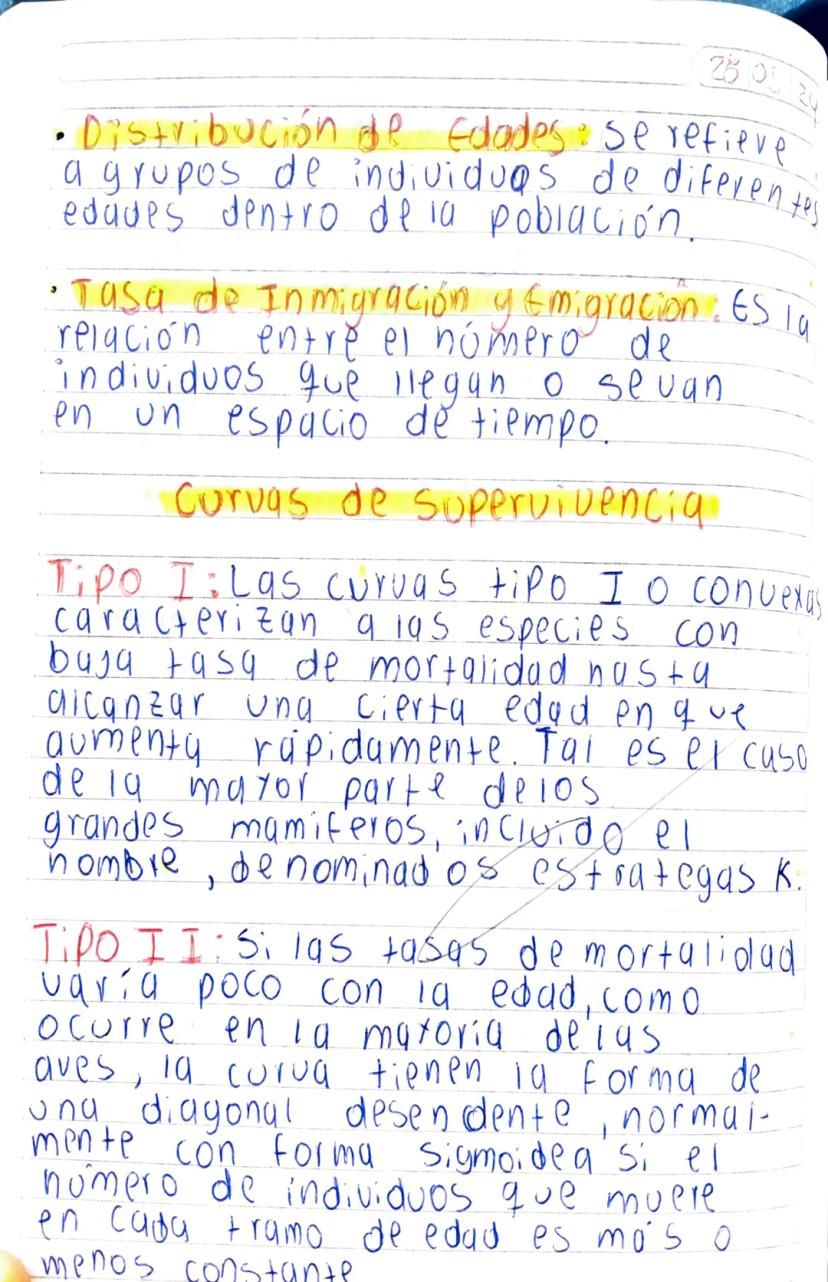 • Distribución de Edades: se refiere
a grupos de individuos de diferentes
edades dentro de la población.
• Tasa de Inmigración y Emigración: Es la
relación entre el número de
individuos que llegan o se van
en un espacio de tiempo.
Curvas de supervivencia
Tipo I: Las curvas tipo I o convexas
caracterizan a las especies con
baja tasa de mortalidad hasta
alcanzar una cierta edad en que
aumenta rápidamente. Tal es el caso
de la mayor parte de los
grandes mamiferos, incluido el
hombre, denominados estrategas K.
Tipo II: Si las tasas de mortalidad
varía poco con la edad, como
ocurre en la mayoria de las
aves, la curva tienen la forma de
una diagonal desendente, normal-
mente con forma sigmoidea si el
número de individuos que muere
en cada tramo de edad es más o
menos constante